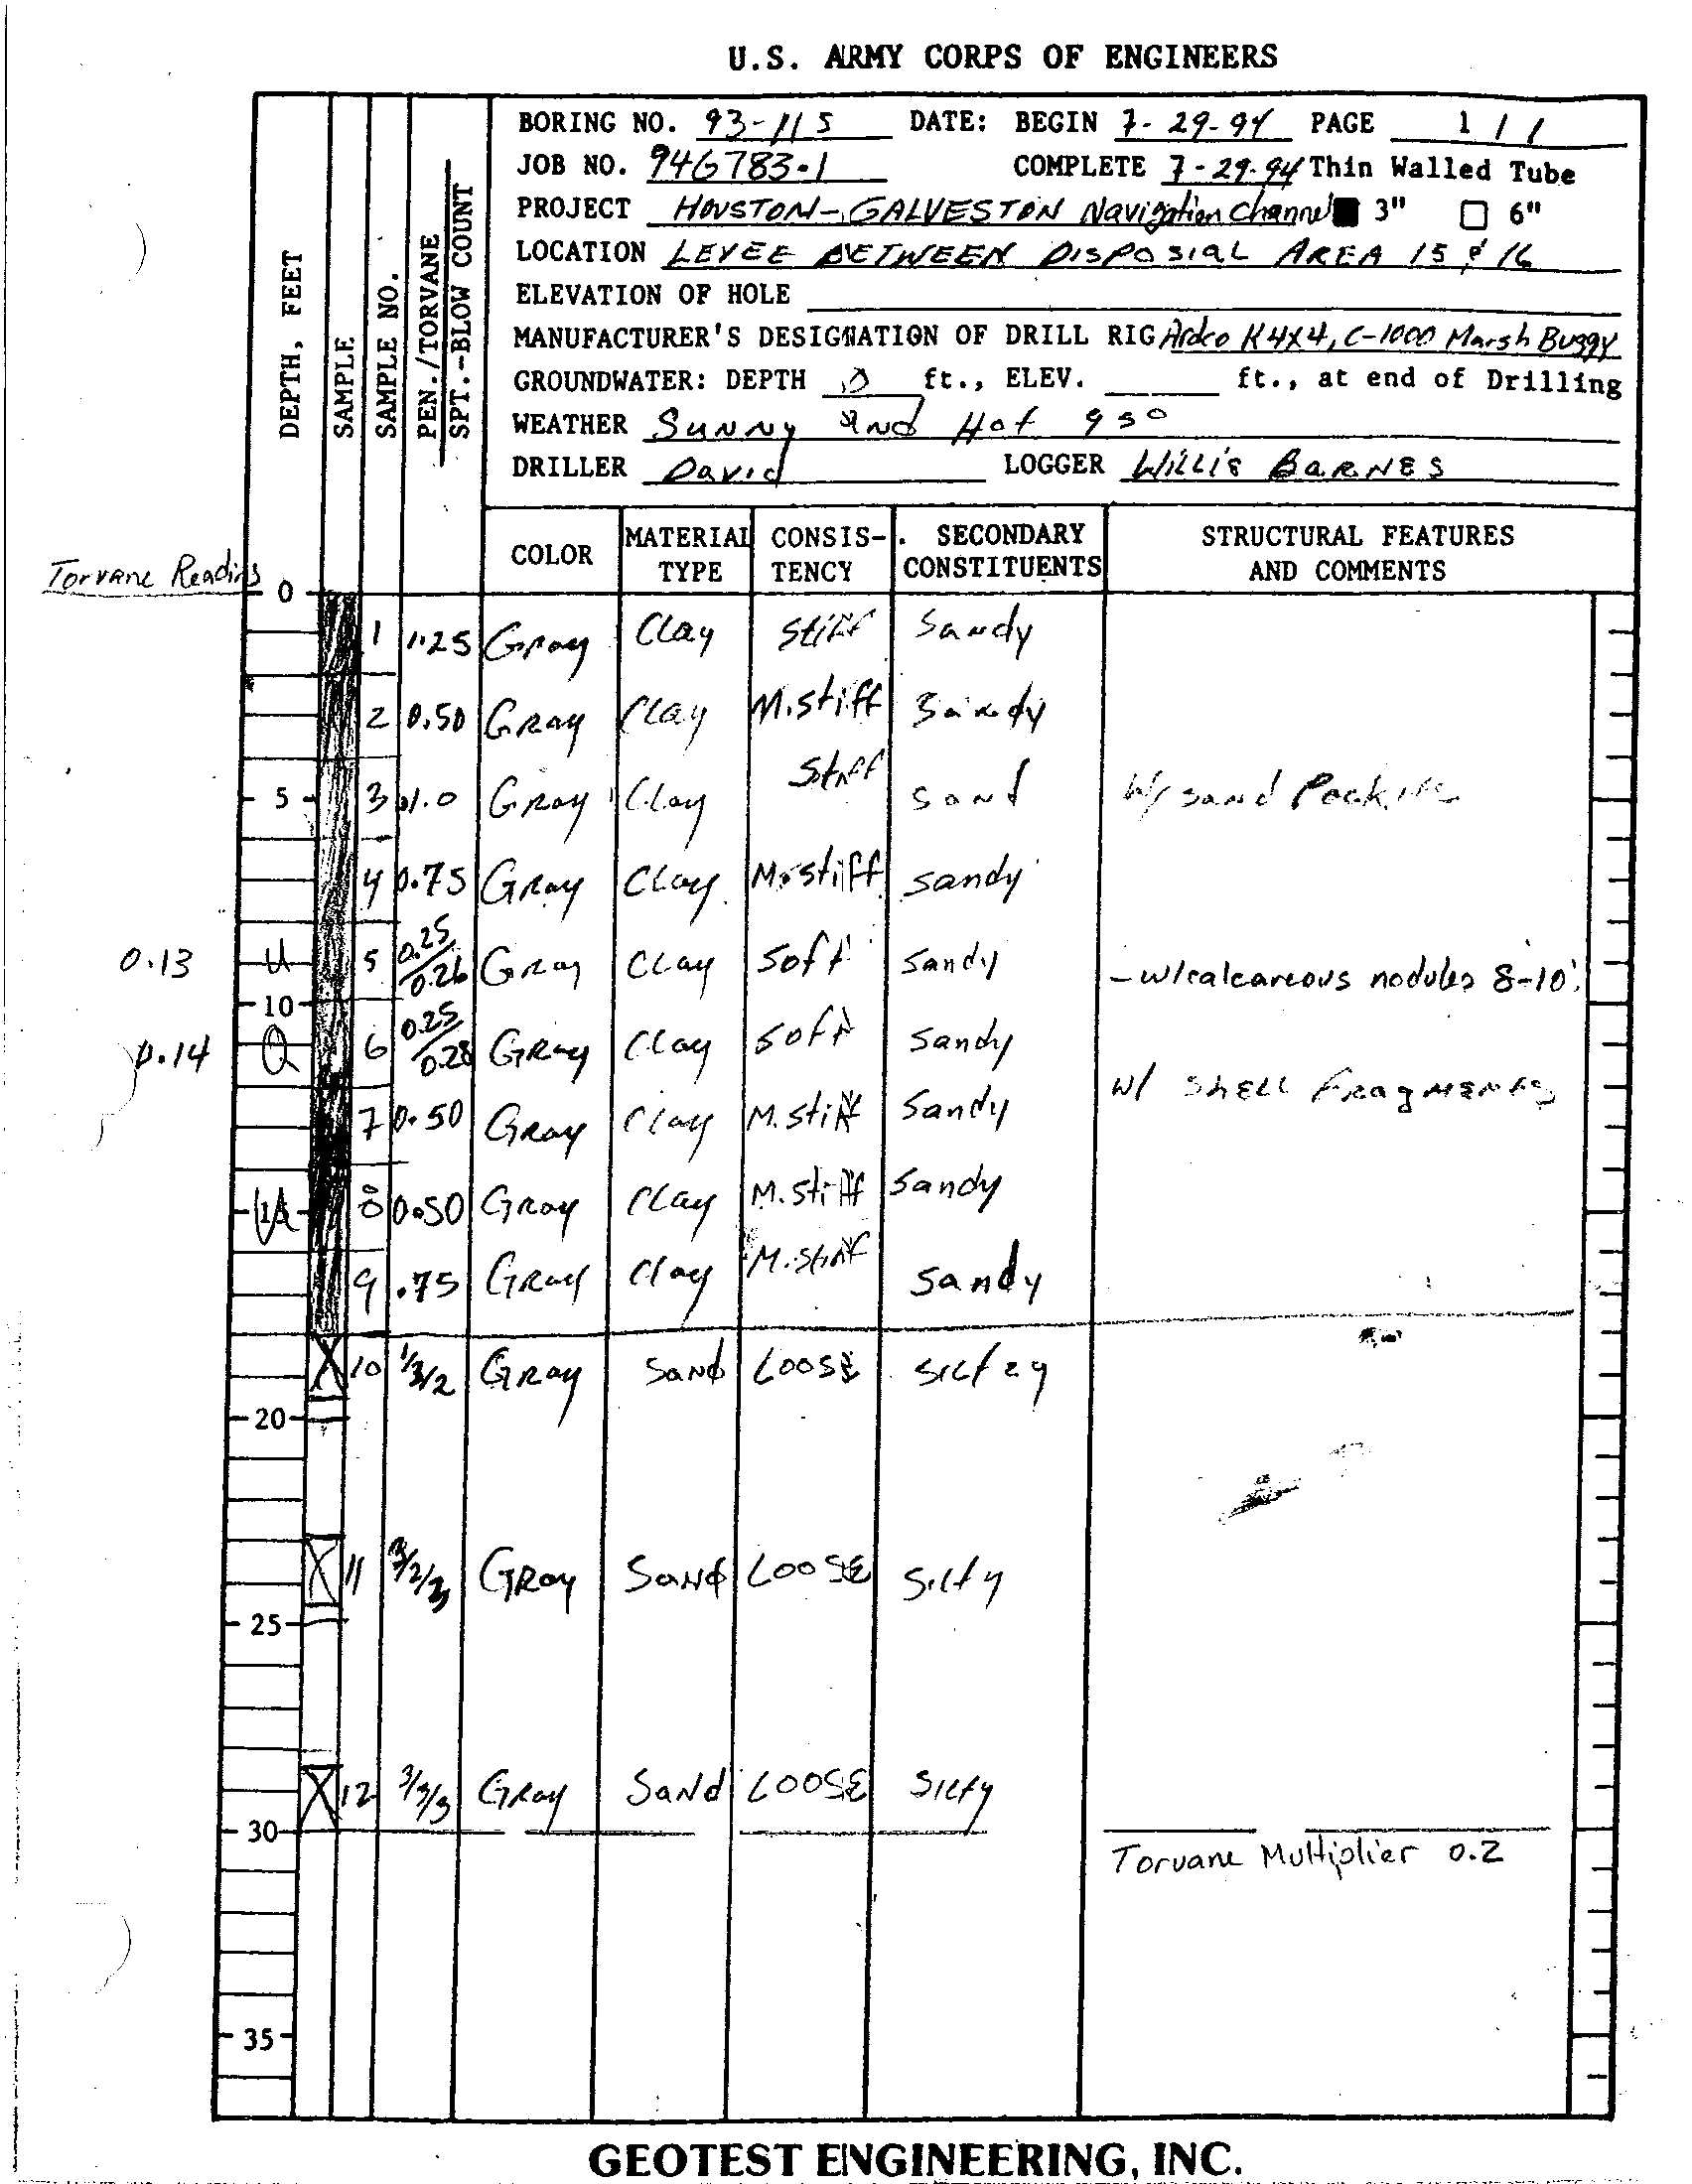 U.S. ARMY CORPS OF ENGINEERS
BORING NO. 93-115 DATE: BEGIN 7-29-94 PAGE 1 / 1
JOB NO. 946783-1 COMPLETE 7-29-94 Thin Walled Tube
PROJECT HOUSTON-GALVESTON Navigation Channel ■ 3" □ 6"
LOCATION LEVEE BETWEEN DISPOSIAL AREA 15 & 16
ELEVATION OF HOLE
MANUFACTURER'S DESIGNATION OF DRILL RIG Ardco K4X4, C-1000 Marsh Buggy
GROUNDWATER: DEPTH ft., ELEV. ft., at end of Drilling
WEATHER SUNNY and Hot 95°
DRILLER David LOGGER Willis BARNES
DEPTH, FEET
SAMPLE
SAMPLE NO.
PEN./TORVANE
SPT.-BLOW COUNT
COLOR MATERIAL TYPE CONSIS-TENCY SECONDARY CONSTITUENTS STRUCTURAL FEATURES AND COMMENTS
Torvane Readings 0
1 1.25 Gray Clay Stiff Sandy
2 0.50 Gray Clay M.stiff Sandy
5 3 1.0 Gray Clay Stiff Sand W/ Sand Pockets
4 0.75 Gray Clay M.stiff Sandy
0.13 U 5 0.25/0.26 Gray Clay Soft Sandy -w/calcareous nodules 8-10'
10
0.14 Q 6 0.25/0.28 Gray Clay Soft Sandy
W/ Shell Fragments
7 0.50 Gray Clay M.stiff Sandy
15 U 8 0.50 Gray Clay M.stiff Sandy
9 .75 Gray Clay M.stiff Sandy
10 1/3/2 Gray Sand Loose Siltey
20
11 3/2/3 Gray Sand Loose Silty
25
12 3/3/3 Gray Sand Loose Silty
30
Torvane Multiplier 0.2
35
GEOTEST ENGINEERING, INC.